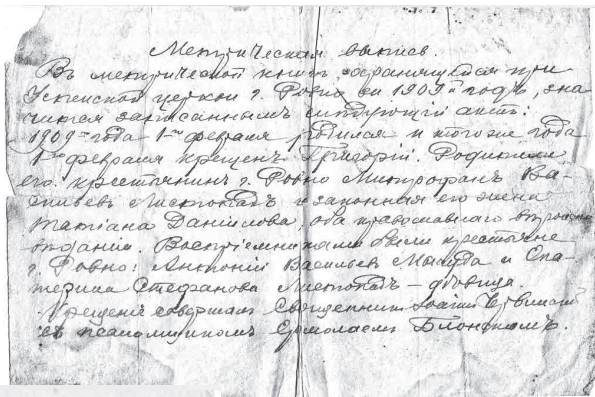 Метрическая выпись.
Въ метрической книгѣ, хранящейся при
Успенской церкви г. Ровно за 1909й годъ, зна
чится записаннымъ слѣдующій актъ:
1909го года 1го февраля родился и того же года
1го февраля крещенъ Григорій. Родители
его: крестьянинъ г. Ровно Митрофанъ Ва-
сильевъ и законная его жена
Татіана Данилова, оба православнаго вѣроис
повѣданія. Воспріемниками были крестьяне
г. Ровно: Антоній Васильевъ и Ека-
терина Стефанова - вдовица.
Крещеніе совершалъ Священникъ Іоаннъ
съ псаломщикомъ Ермолаемъ